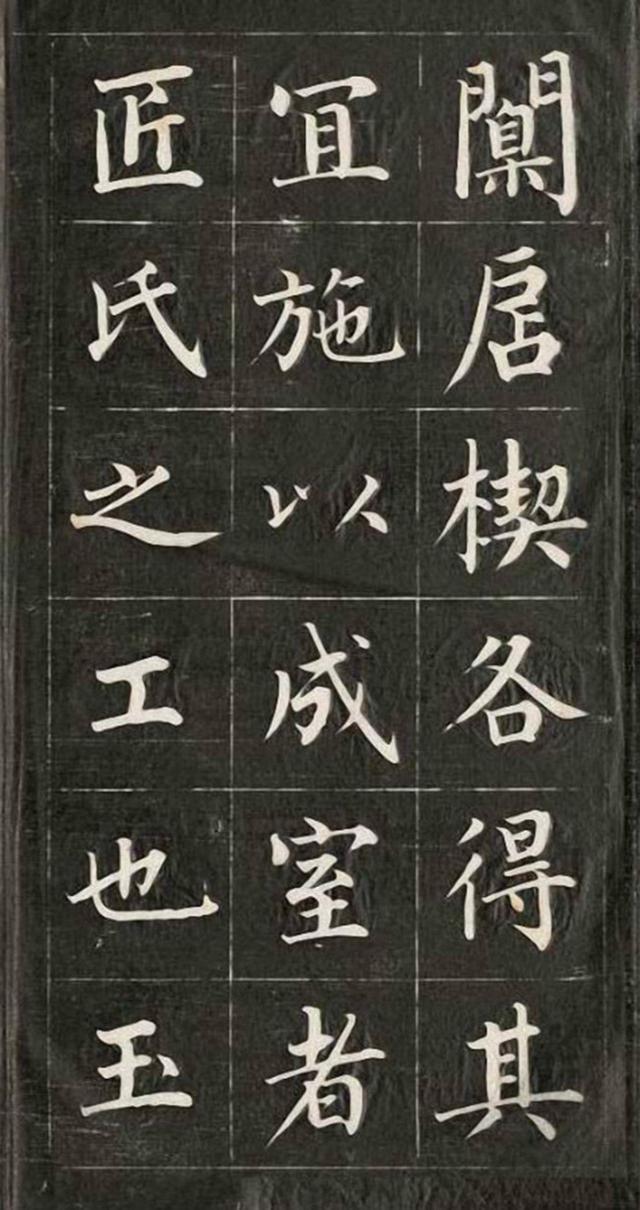 闑扂楔各得其
宜施以成室者
匠氏之工也玉